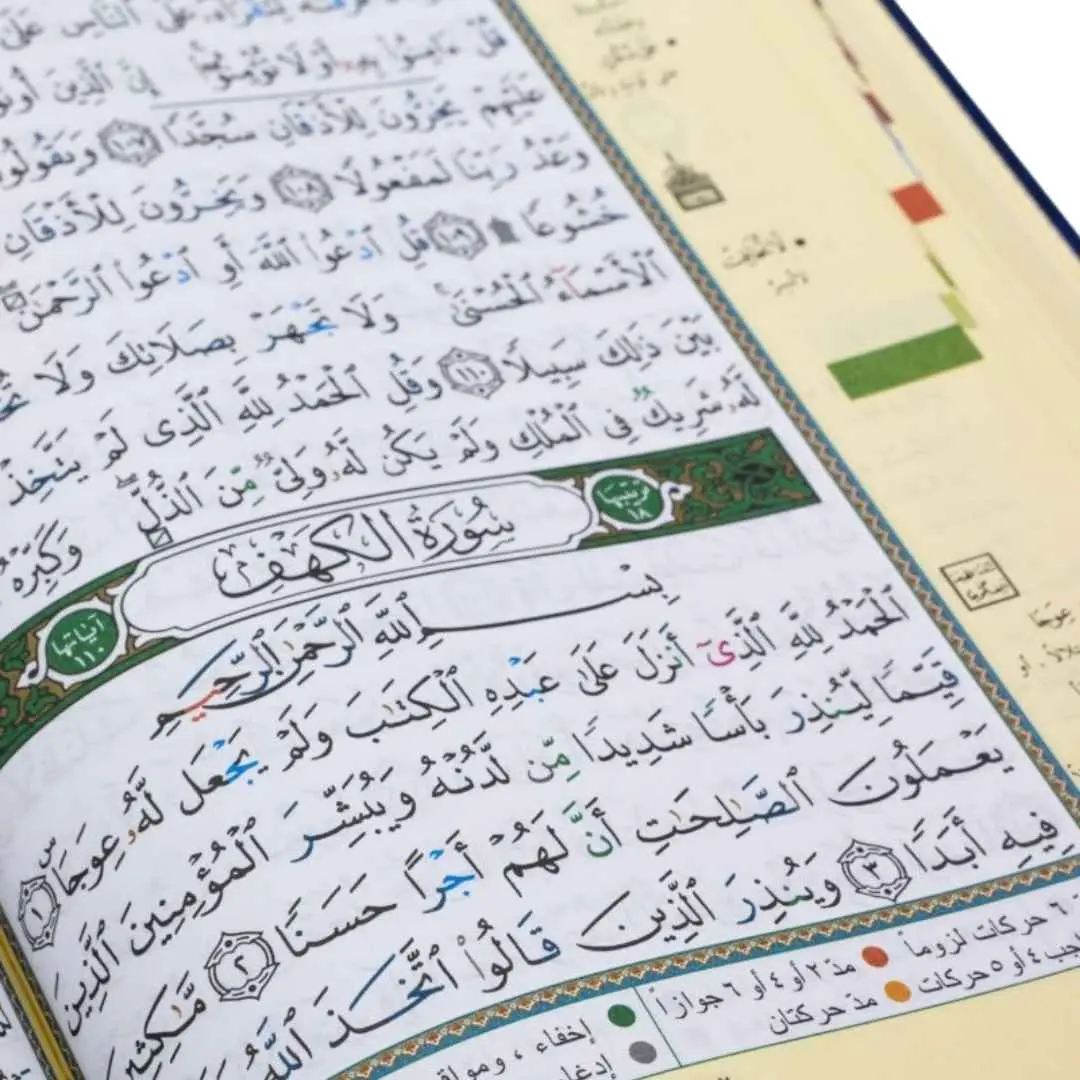 قُلْ ءَامِنُوا۟ بِهِۦٓ أَوْ لَا تُؤْمِنُوٓا۟ إِنَّ ٱلَّذِينَ أُوتُوا۟
عَلَيْهِمْ يَخِرُّونَ لِلْأَذْقَانِ سُجَّدًا ١٠٧ وَيَقُولُونَ
وَعْدُ رَبِّنَا لَمَفْعُولًا ١٠٨ وَيَخِرُّونَ لِلْأَذْقَانِ
خُشُوعًا ۩ ١٠٩ قُلِ ٱدْعُوا۟ ٱللَّهَ أَوِ ٱدْعُوا۟ ٱلرَّحْمَٰنَ
ٱلْأَسْمَآءُ ٱلْحُسْنَىٰ وَلَا تَجْهَرْ بِصَلَاتِكَ وَلَا
بَيْنَ ذَٰلِكَ سَبِيلًا ١١٠ وَقُلِ ٱلْحَمْدُ لِلَّهِ ٱلَّذِى لَمْ يَتَّخِذْ
لَّهُۥ شَرِيكٌ فِى ٱلْمُلْكِ وَلَمْ يَكُن لَّهُۥ وَلِىٌّ مِّنَ ٱلذُّلِّ وَكَبِّرْهُ
ترتيبها ١٨ سُورَةُ الكَهْفِ آياتها ١١٠
بِسْمِ ٱللَّهِ ٱلرَّحْمَٰنِ ٱلرَّحِيمِ
ٱلْحَمْدُ لِلَّهِ ٱلَّذِىٓ أَنزَلَ عَلَىٰ عَبْدِهِ ٱلْكِتَٰبَ وَلَمْ يَجْعَل لَّهُۥ عِوَجَاۜ ١
قَيِّمًا لِّيُنذِرَ بَأْسًا شَدِيدًا مِّن لَّدُنْهُ وَيُبَشِّرَ ٱلْمُؤْمِنِينَ ٱلَّذِينَ
يَعْمَلُونَ ٱلصَّٰلِحَٰتِ أَنَّ لَهُمْ أَجْرًا حَسَنًا ٢ مَّٰكِثِينَ
فِيهِ أَبَدًا ٣ وَيُنذِرَ ٱلَّذِينَ قَالُوا۟ ٱتَّخَذَ ٱللَّهُ
عِوَجًا
٦ حركات لزوماً مدّ ٢ أو ٤ أو ٦ جوازاً
٤ أو ٥ حركات مدّ حركتان
إخفاء ،